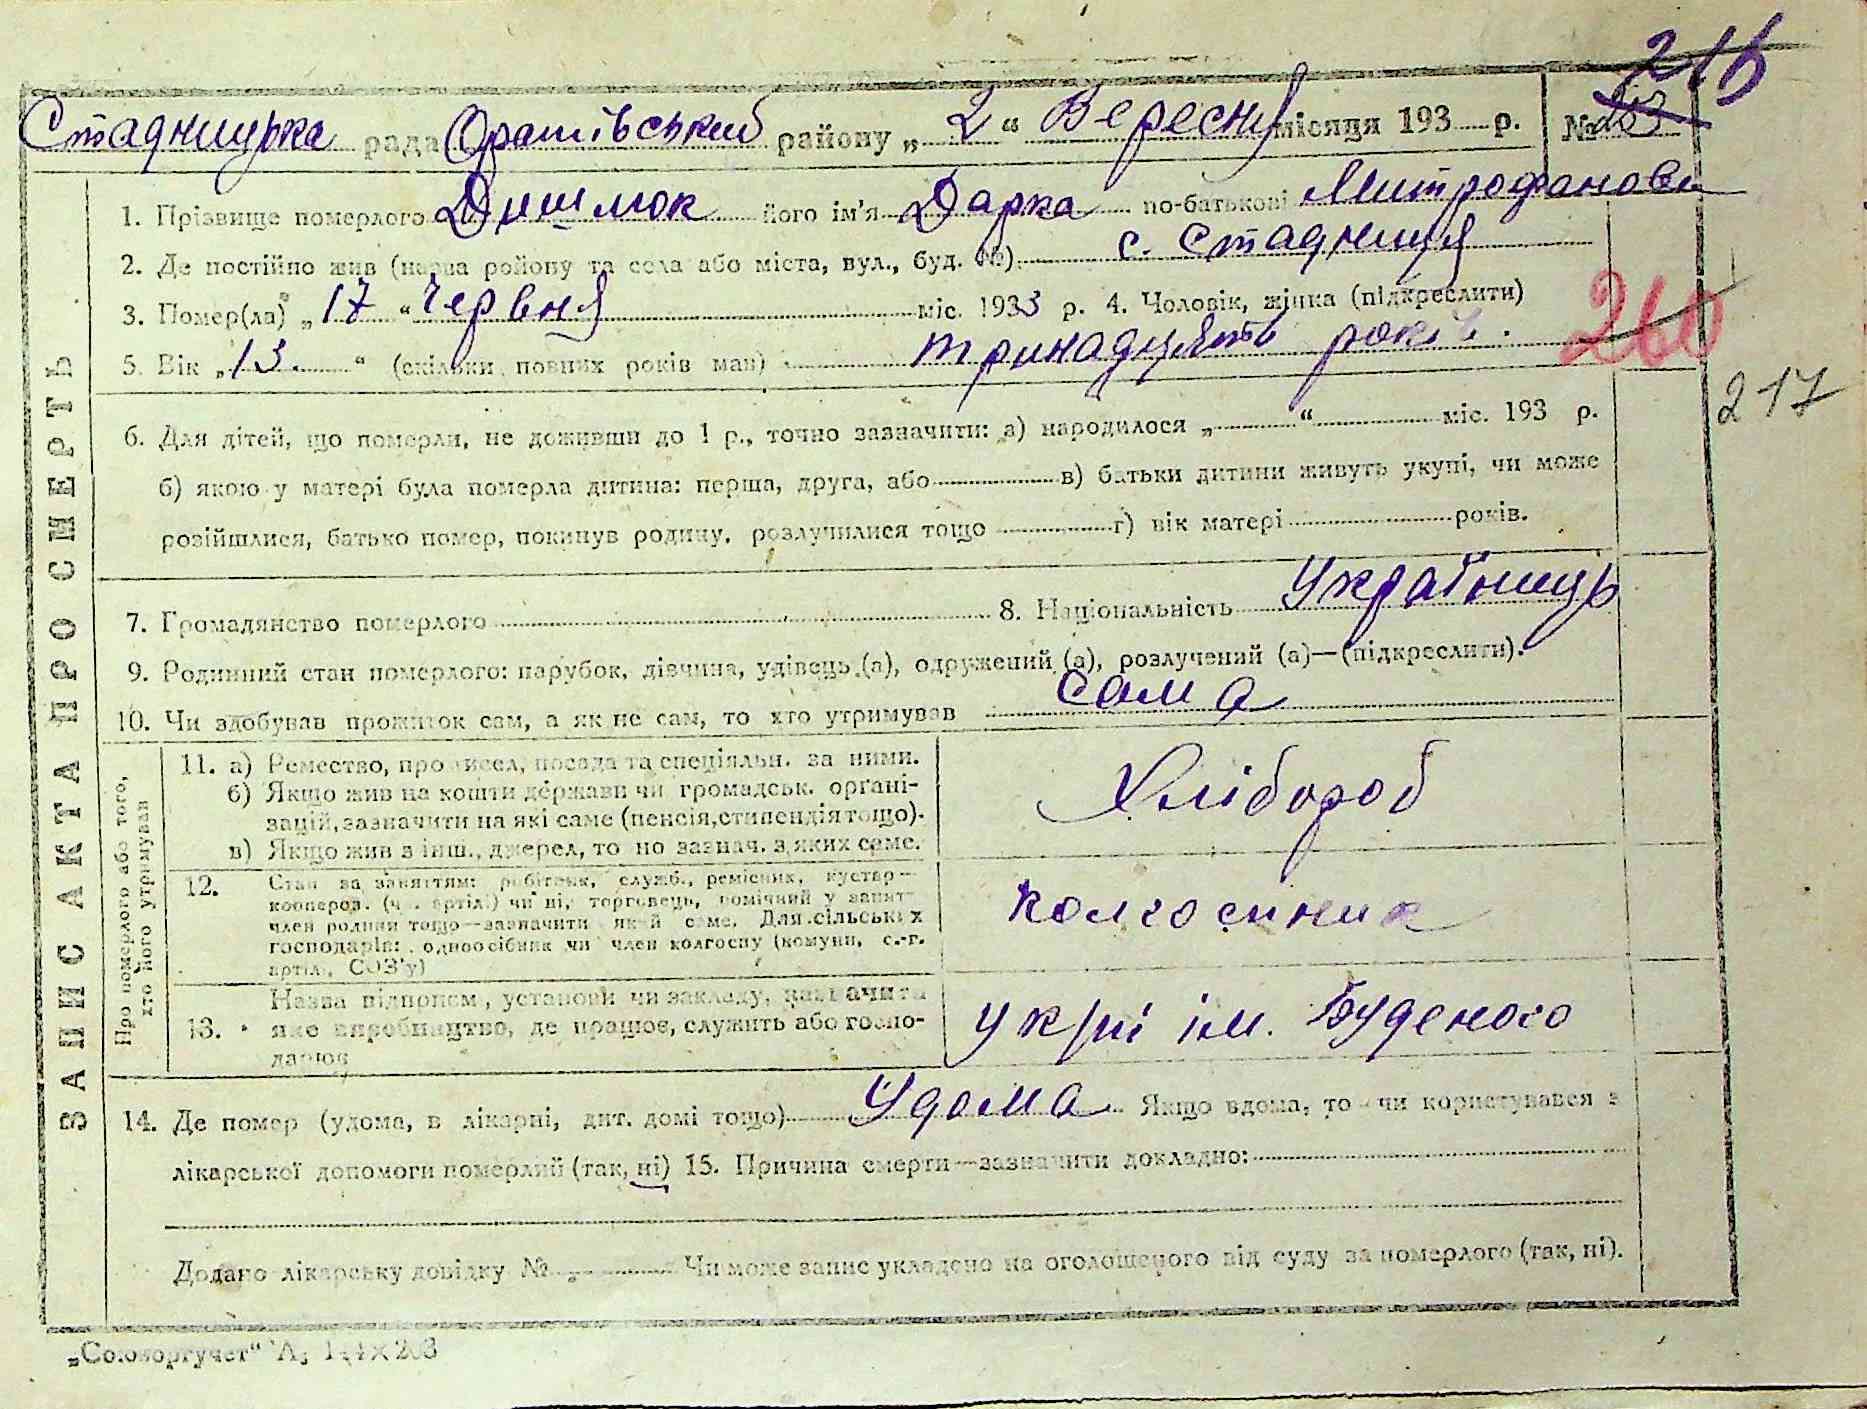 216
Стадницька рада Оратівський району „ 2 “ Вересня місяця 193 р. №
1. Прізвище померлого Дишлюк його ім'я Дарка по-батькові Митрофанови
2. Де постійно жив (назва району та села або міста, вул., буд. №) с. Стадниця
3. Помер(ла) „ 17 “ Червня міс. 1933 р. 4. Чоловік, жінка (підкреслити)
260
5. Вік „ 13. “ (скільки повних років мав) тринадцять років.
217
6. Для дітей, що померли, не доживши до 1 р., точно зазначити: а) народилося „ “ міс. 193 р.
б) якою у матері була померла дитина: перша, друга, або в) батьки дитини живуть укупі, чи може
розійшлися, батько помер, покинув родину, розлучилися тощо г) вік матері років.
7. Громадянство померлого 8. Національність Українець
9. Родинний стан померлого: парубок, дівчина, удівець (а), одружений (а), розлучений (а)—(підкреслити).
10. Чи здобував прожиток сам, а як не сам, то хто утримував сама
ЗАПИС АКТА ПРО СМЕРТЬ
Про померлого або того,
хто його утримував
11. а) Ремество, промисел, посада та спеціяльн. за ними.
б) Якщо жив на кошти держави чи громадськ. органі-
зацій, зазначити на які саме (пенсія, стипендія тощо).
в) Якщо жив з інш. джерел, то но зазнач. з яких саме.
Хлібороб
12. Стан за заняттям: робітник, служб., ремісник, кустар—
кооперов. (ч. артілі) чи ні, торговець, помічний у занят—
член родини тощо—зазначити який саме. Для сільських
господарів: одноосібник чи член колгоспу (комуни, с.-г.
артілі, СОЗ'у)
колгоспник
13. Назва підприєм, установи чи закладу, зазначити
яке виробництво, де працює, служить або госпо-
дарює
ім. Буденого
14. Де помер (удома, в лікарні, дит. домі тощо) Удома Якщо вдома, то чи користувався з
лікарської допомоги померлий (так, ні) 15. Причина смерти—зазначити докладно:
Додано лікарську довідку № Чи може запис укладено на оголошеного від суду за померлого (так, ні).
„Союзоргучет“